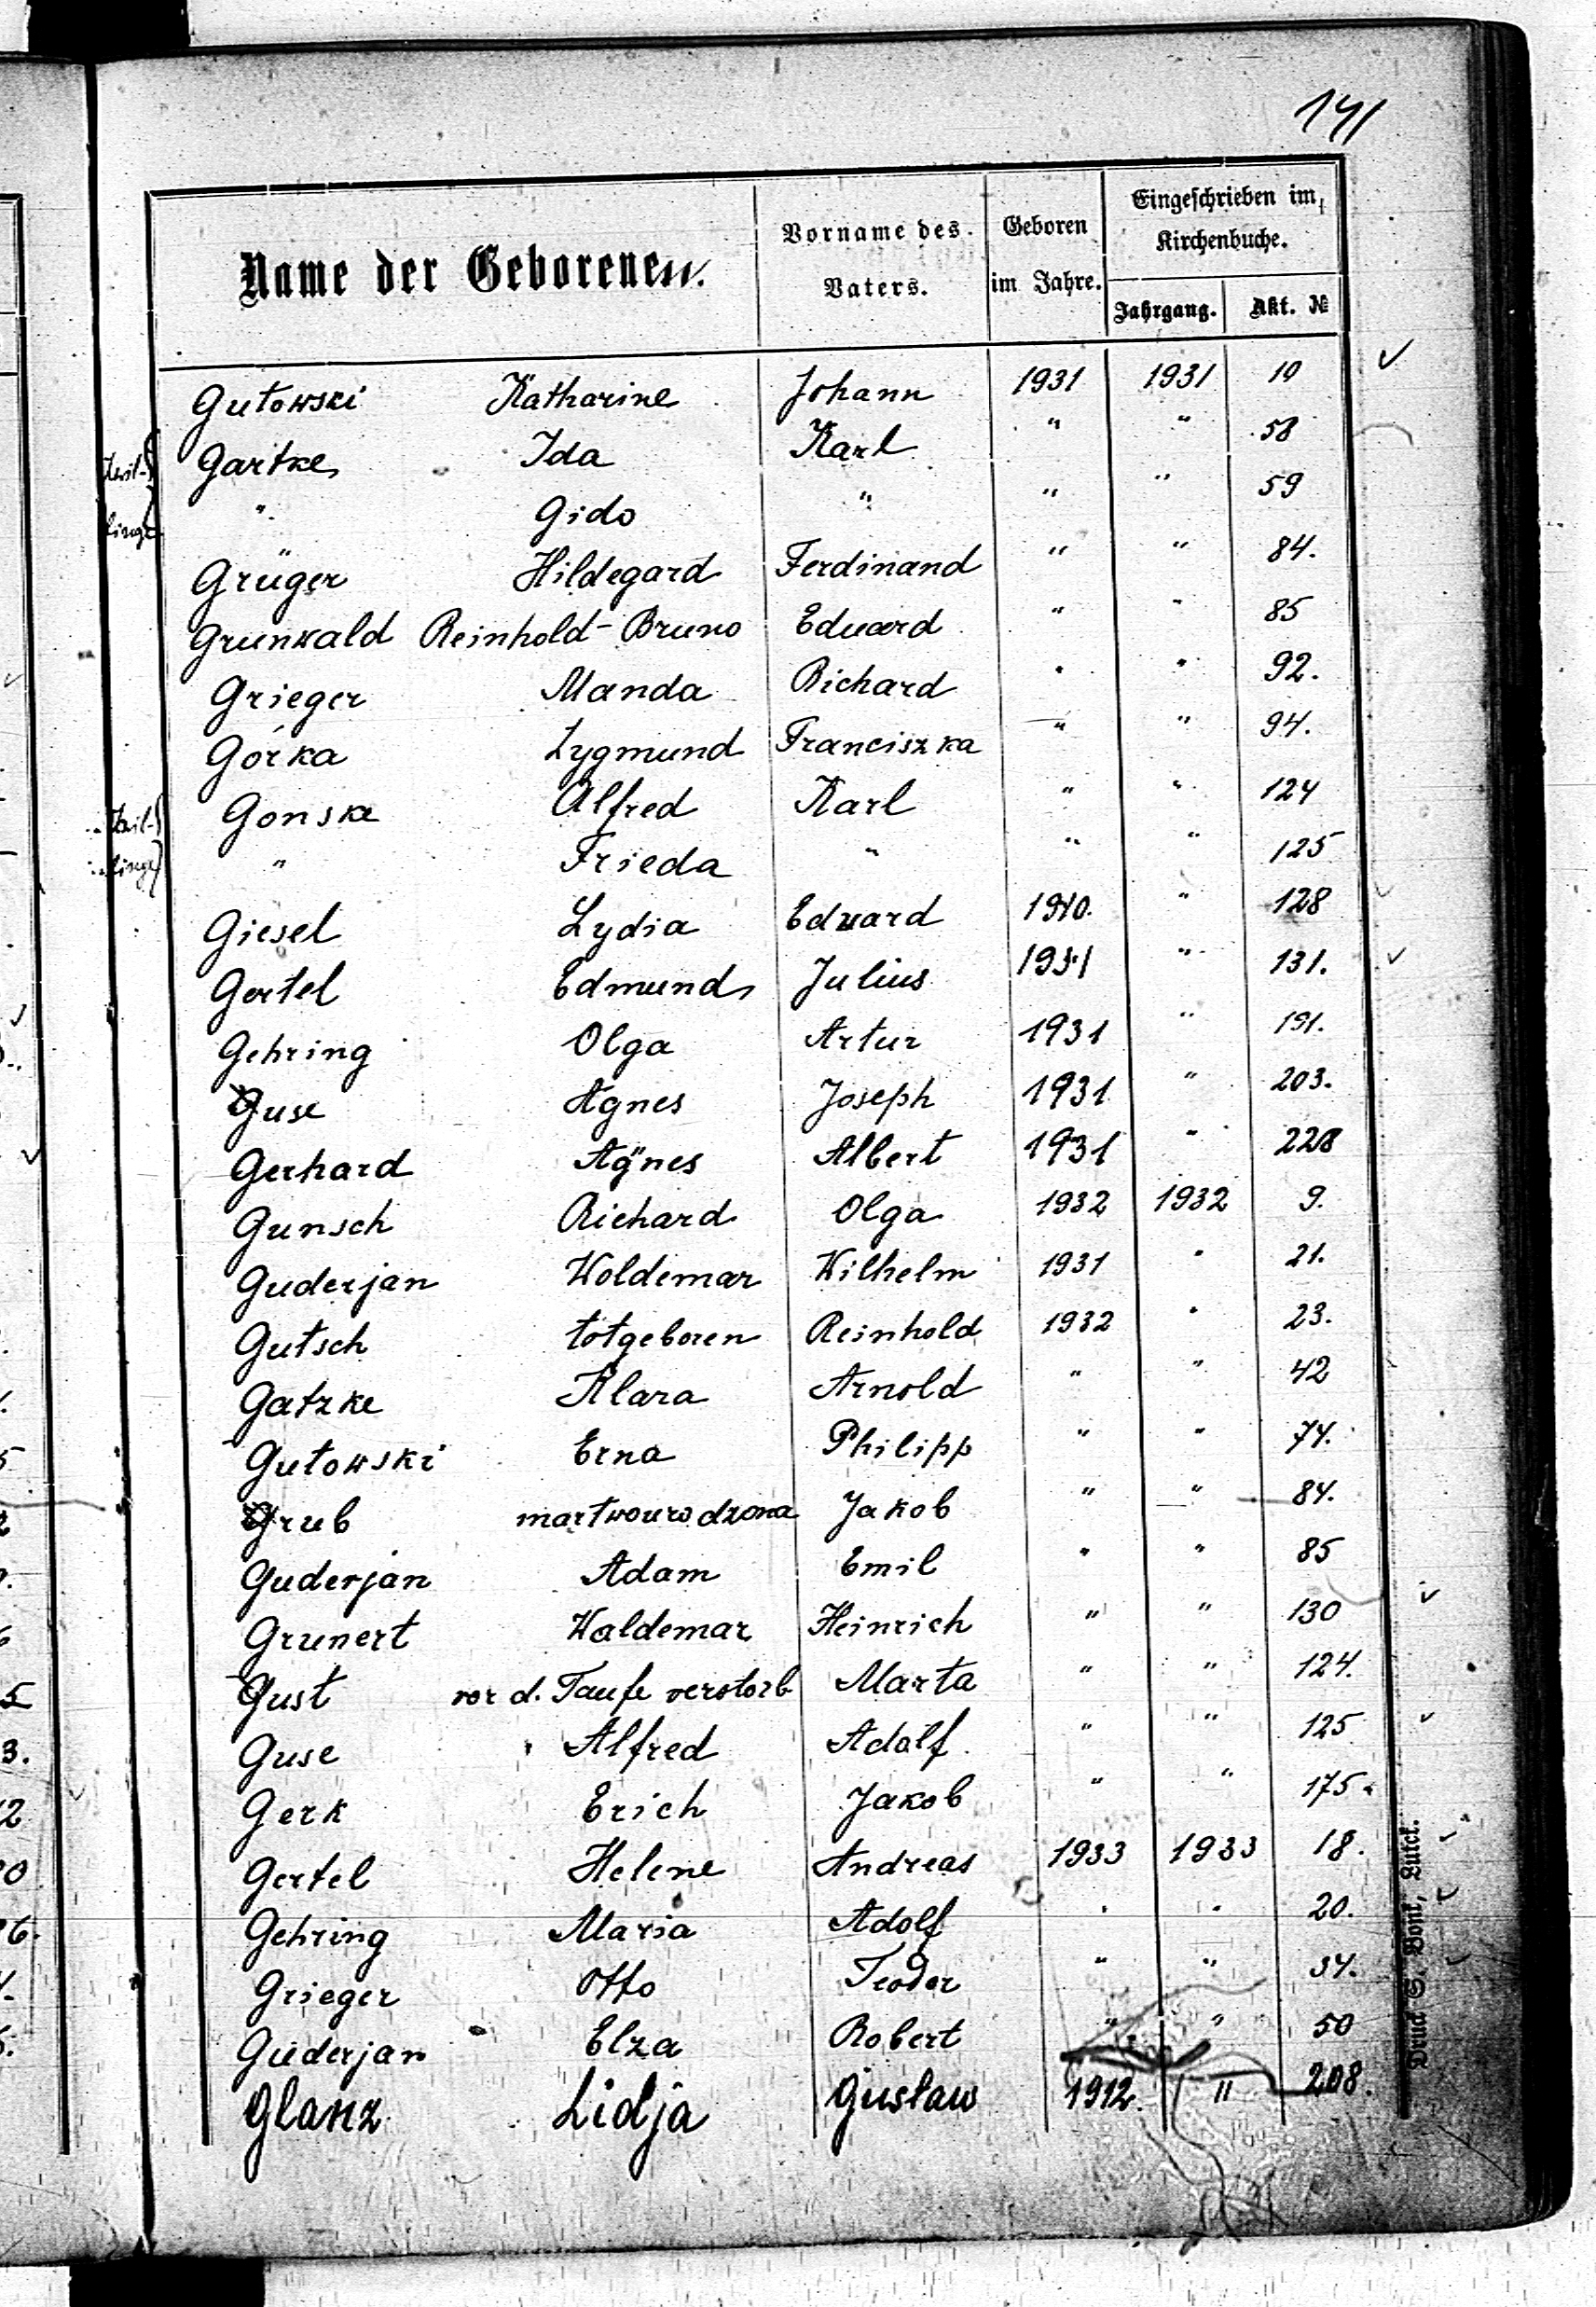 141
Name der Geborenen. Vorname des Vaters. Geboren im Jahre. Eingeschrieben im Kirchenbuche. Jahrgang. Akt. №
Gutowski Katharine Johann 1931 1931 10
Gartke Ida Karl " " 58
" Gido " " " 59
Grüger Hildegard Ferdinand " " 84.
Grunwald Reinhold-Bruno Eduard " " 85
Grieger Manda Richard " " 92.
Górka Zygmund Franciszka " " 94.
Gonske Alfred Karl " " 124
" Frieda " " " 125
Giesel Lydia Eduard 1910. " 128
Gertel Edmund Julius 1931 " 131.
Gehring Olga Artur 1931 " 191.
Guse Agnes Joseph 1931 " 203.
Gerhard Agnes Albert 1931 " 228
Gunsch Richard Olga 1932 1932 9.
Guderjan Woldemar Wilhelm 1931 " 21.
Gutsch totgeboren Reinhold 1932 " 23.
Gatzke Klara Arnold " " 42
Gutowski Erna Philipp " " 74.
Grub martwourodzona Jakob " " 84.
Guderjan Adam Emil " " 85
Grunert Waldemar Heinrich " " 130
Gust vor d. Taufe verstorb Marta " " 124.
Guse Alfred Adolf " " 125
Gerk Erich Jakob " " 175.
Gertel Helene Andreas 1933 1933 18.
Gehring Maria Adolf " " 20.
Grieger Otto Teodor " " 34.
Guderjan Elza Robert " " 50
Glanz Lidja Gustaw 1912. " 208.
Druck S. Bont, Luck.